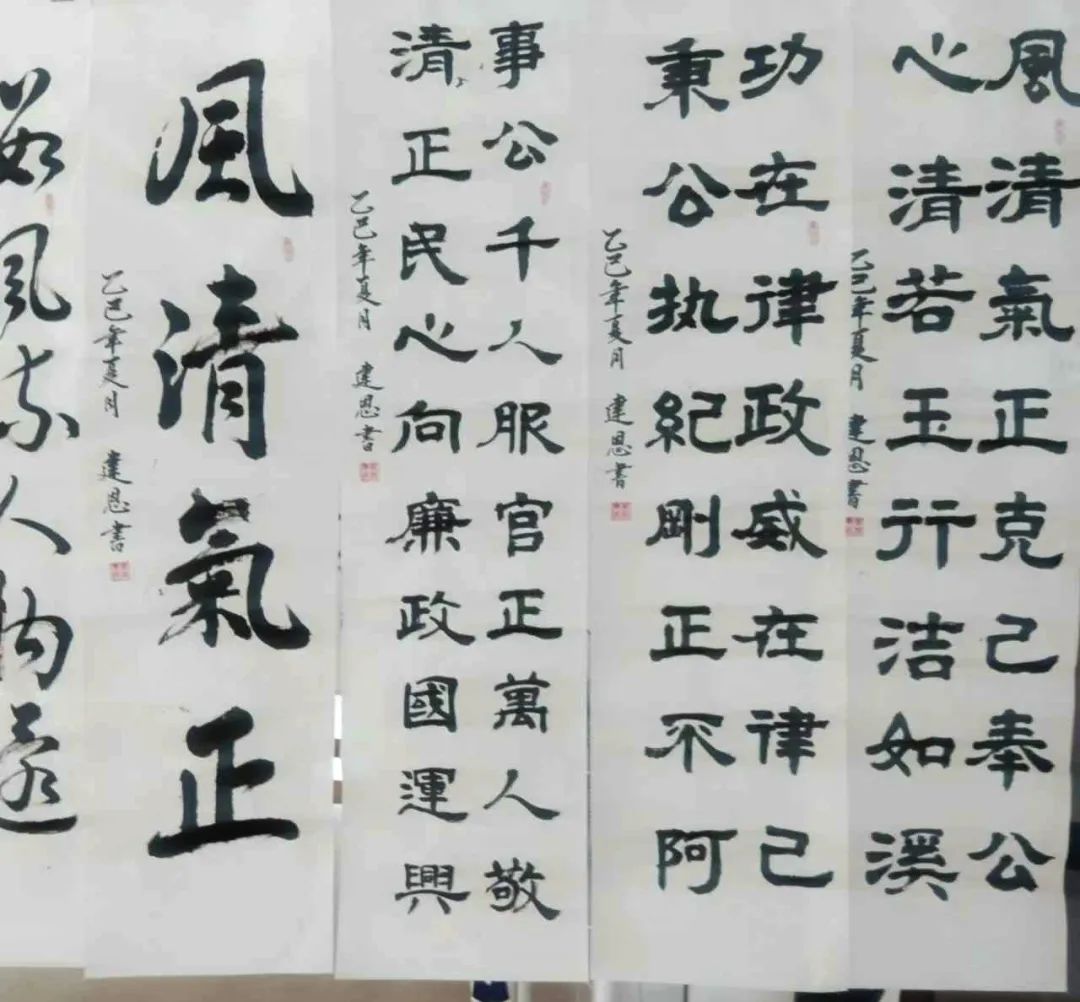 風清氣正克己奉公
心清若玉行洁如溪
乙巳年夏月 建恩書
功在律政威在律己
秉公执紀剛正不阿
乙巳年夏月 建恩書
事公千人服官正萬人敬
清正民心向廉政國運興
乙巳年夏月 建恩書
風清氣正
乙巳年夏月 建恩書
风人